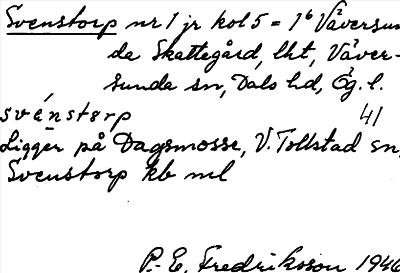 Svenstorp nr 1 jr kol 5 = 1⁶ Väversun-
da Skattegård, lht, Väver-
sunda sn, Dals hd, Ög. l.
svénstɘrp 41
Ligger på Dagsmosse, V. Tollstad sn,
Svenstorp kb ml
P.-E. Fredriksson 1946